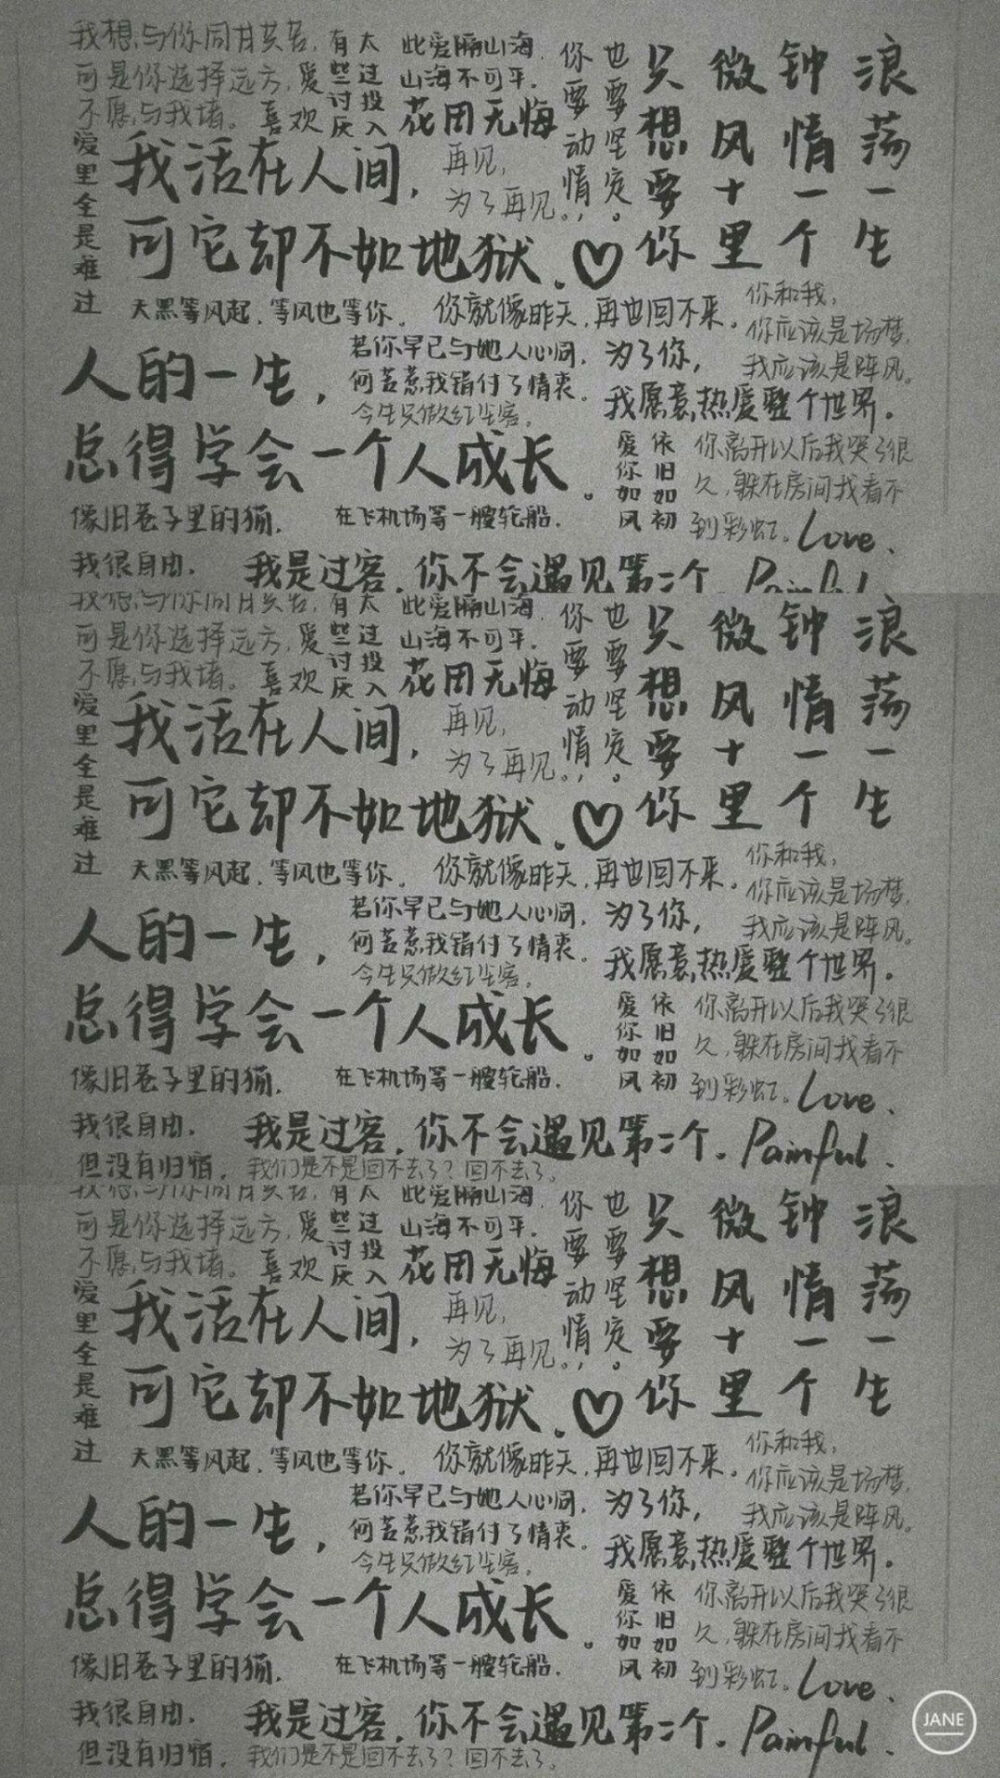 我想与你同甘共苦，
可是你选择远方，
不愿与我堵。
爱里全是难过
爱喜欢
有些讨厌
太过投入
此爱隔山海，
山海不可平。
花田无悔
你要动情，
也要坚定。
只想要你
微风十里
钟情一个
浪荡一生
我活在人间，
可它却不如地狱。♡
再见，
为了再见。
天黑等风起，等风也等你。
你就像昨天，再也回不来。
你和我，
你应该是场梦，
我应该是阵风。
人的一生，
总得学会一个人成长。
若你早已与她人心同，
何苦惹我错付了情衷。
今生只做红尘客。
为了你，
我愿意热爱整个世界。
爱你如风
依旧如初
你离开以后我哭了很
久，躲在房间找看不
到彩虹。
Love、
像旧巷子里的猫，
在飞机场等一艘轮船。
我很自由，
我是过客，你不会遇见第二个。
Painful
我想与你同甘共苦，
可是你选择远方，
不愿与我堵。
爱里全是难过
爱喜欢
有些讨厌
太过投入
此爱隔山海，
山海不可平。
花田无悔
你要动情，
也要坚定。
只想要你
微风十里
钟情一个
浪荡一生
我活在人间，
可它却不如地狱。♡
再见，
为了再见。
天黑等风起，等风也等你。
你就像昨天，再也回不来。
你和我，
你应该是场梦，
我应该是阵风。
人的一生，
总得学会一个人成长。
若你早已与她人心同，
何苦惹我错付了情衷。
今生只做红尘客。
为了你，
我愿意热爱整个世界。
爱你如风
依旧如初
你离开以后我哭了很
久，躲在房间找看不
到彩虹。
Love、
像旧巷子里的猫，
在飞机场等一艘轮船。
我很自由，
但没有归宿。
我是过客，你不会遇见第二个。
Painful、
我们是不是回不去了？回不去了。
我想与你同甘共苦，
可是你选择远方，
不愿与我堵。
爱里全是难过
爱喜欢
有些讨厌
太过投入
此爱隔山海，
山海不可平。
花田无悔
你要动情，
也要坚定。
只想要你
微风十里
钟情一个
浪荡一生
我活在人间，
可它却不如地狱。♡
再见，
为了再见。
天黑等风起，等风也等你。
你就像昨天，再也回不来。
你和我，
你应该是场梦，
我应该是阵风。
人的一生，
总得学会一个人成长。
若你早已与她人心同，
何苦惹我错付了情衷。
今生只做红尘客。
为了你，
我愿意热爱整个世界。
爱你如风
依旧如初
你离开以后我哭了很
久，躲在房间找看不
到彩虹。
Love、
像旧巷子里的猫，
在飞机场等一艘轮船。
我很自由，
但没有归宿。
我是过客，你不会遇见第二个。
Painful、
我们是不是回不去了？回不去了。
JANE